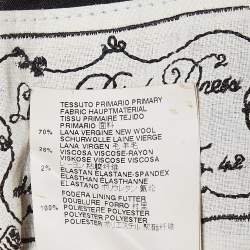 TESSUTO PRIMARIO PRIMARY
FABRIC HAUPTMATERIAL
TISSU PRIMAIRE TEJIDO
PRIMARIO 面料
70% LANA VERGINE NEW WOOL
SCHURWOLLE LAINE VIERGE
LANA VIRGEN 毛 羊毛
28% VISCOSA VISCOSE-RAYON
VISKOSE VISCOSE VISCOSA
レーヨン 粘胶纤维
2% ELASTAN ELASTANE-SPANDEX
ELASTHAN ELASTHANNE
ELASTANO ポリウレタン 氨纶
FODERA LINING FUTTER
DOUBLURE FORRO 里料
100% POLIESTERE POLYESTER
POLYESTER POLYESTER
POLIESTER ポリエステル